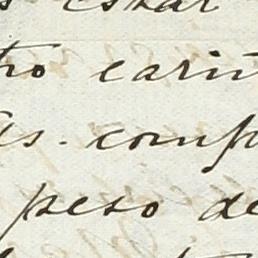 estar
tro cariñ
as. comp
peso de